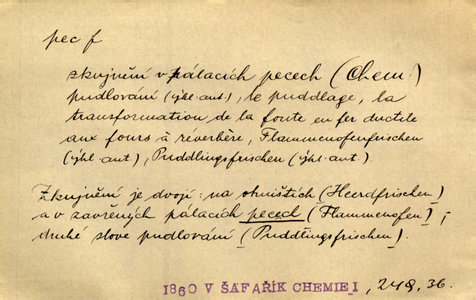 pec f
zkujnění v pálacích pecech (Chem.)
pudlování (výkl-ant), le puddlage, la
transformation de la fonte en fer ductele
aux fours à réverbère, Flammenofenfrischen
(výkl-ant), Puddlingsfrischen (výkl-ant.)
Zkujnění je dvojí: na ohništích (Heerdfrischen)
a v zavřených pálacích pecech (Flammenofen),
druhé slove pudlování (Puddlingsfrischen).
1860 V ŠAFAŘÍK CHEMIE I, 248, 36.